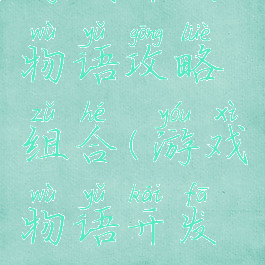 wù yǔ gōng lüè
物语攻略
zǔ hé yóu xì
组合(游戏
wù yǔ kāi fā
物语开发